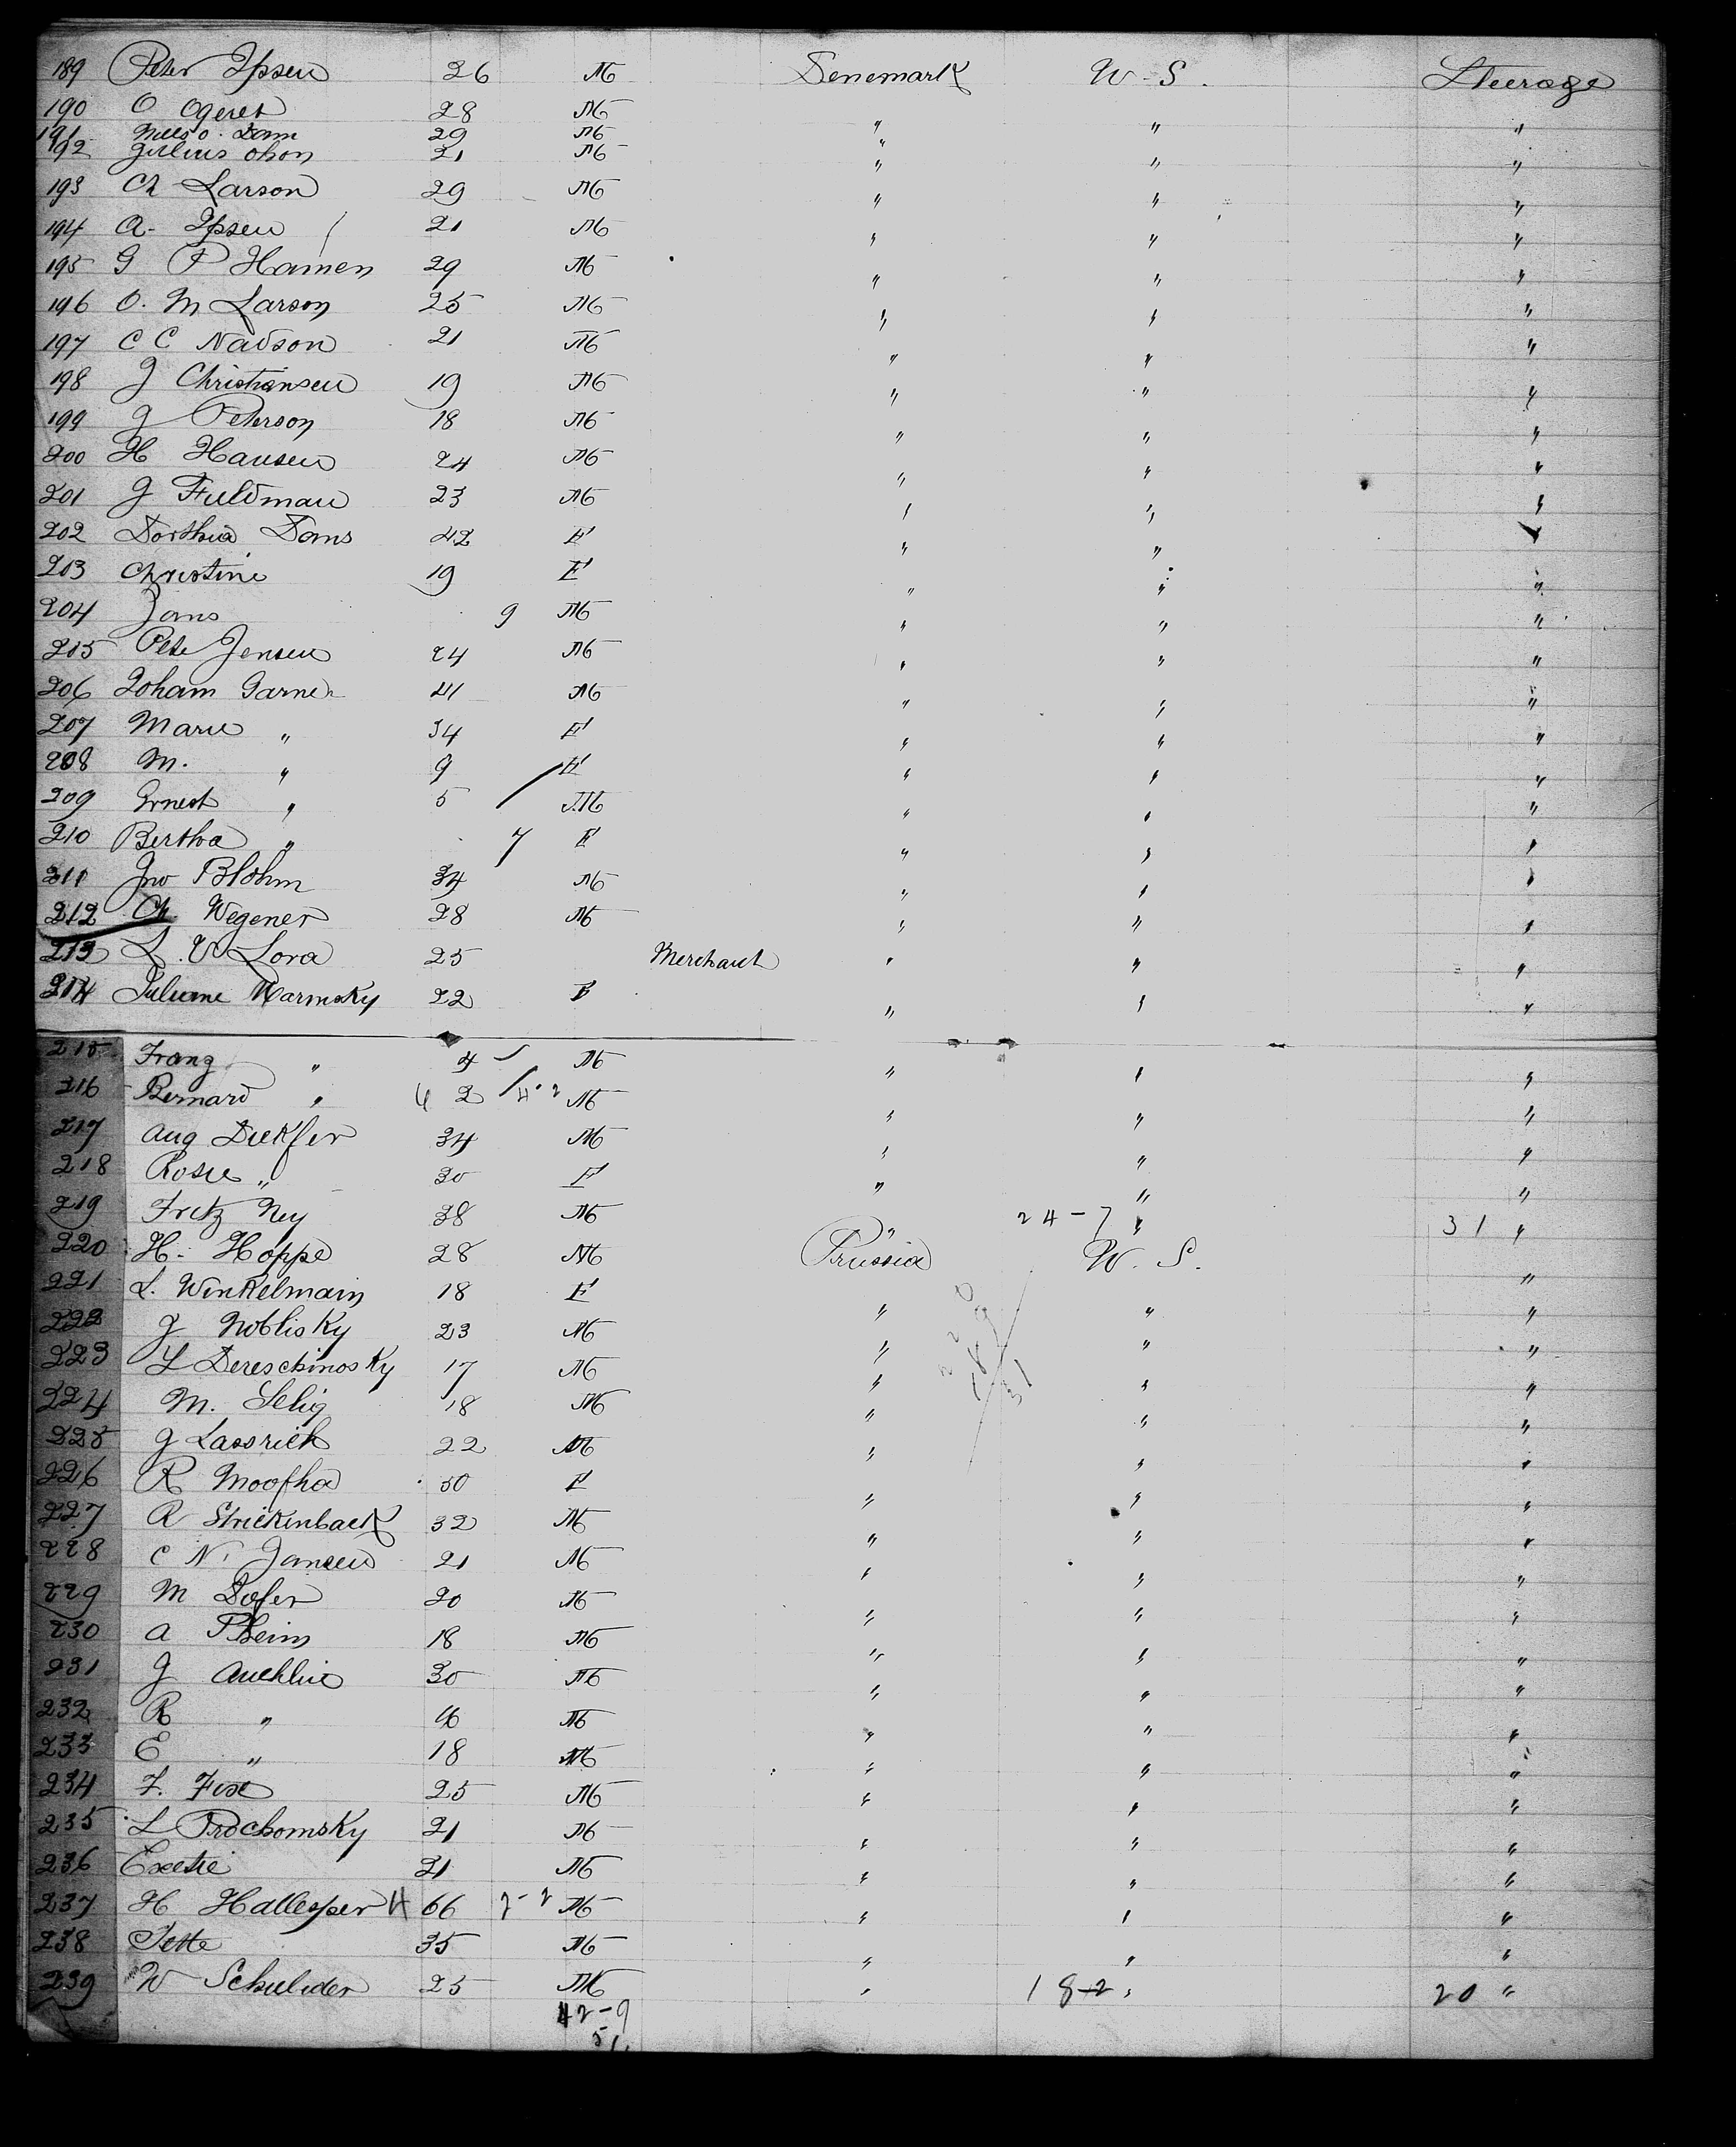 189 Peter Ipsen 26 M Denemark W. S. Steerage
190 O Ogeret 28 M " " "
191 Nills O. Damm 29 M " " "
192 Julius Olson 21 M " " "
193 Ch Larson 29 M " " "
194 A. Ipsen 21 M " " "
195 G P Hamen 29 M " " "
196 O. M Larson 25 M " " "
197 C C Nadson 21 M " " "
198 J Christiansen 19 M " " "
199 J Peterson 18 M " " "
200 H Hansen 24 M " " "
201 J Fuldman 23 M " " "
202 Dorthia Dams 42 F " " "
203 Christine 19 F " " "
204 Jans 9 M " " "
205 Pete Jensen 24 M " " "
206 Joham Garner 41 M " " "
207 Marie " 34 F " " "
208 M. " 9 F " " "
209 Ernest " 5 M " " "
210 Bertha " 7 F " " "
211 Jno Blohm 34 M " " "
212 Ch. Wegener 28 M " " "
213 L. V Lora 25 Merchant " " "
214 Juliane Marmsky 22 F " " "
215 Franz " 4 M " " "
216 Bernard " 2 4-2 M " " "
217 Aug Diekfer 34 M " " "
218 Rosie " 30 F " " "
219 Fritz Ney 38 M " 24-7 " 31 "
220 H. Hoppe 28 M Prussia W. S. "
221 L. Winkelmain 18 F " " "
222 J Noblisky 23 M " " "
223 L Dereschinosky 17 M " " "
224 M. Selig 18 M " " "
225 J Lassrick 22 M " " "
226 R Moofha 50 F " " "
227 R Strickenback 32 M " " "
228 C N. Jansen 21 M " " "
229 M Dofer 20 M " " "
230 A Pheim 18 M " " "
231 J Auchlie 30 M " " "
232 R " M " " "
233 E " 18 M " " "
234 F. Fixe 25 M " " "
235 L Prochomsky 21 M " " "
236 Exetie 21 M " " "
237 H Hallesper 4 66 7-2 M " " "
238 Jette 35 M " " "
239 W Schulider 25 M " 18-2 " 20 "
42-9
51